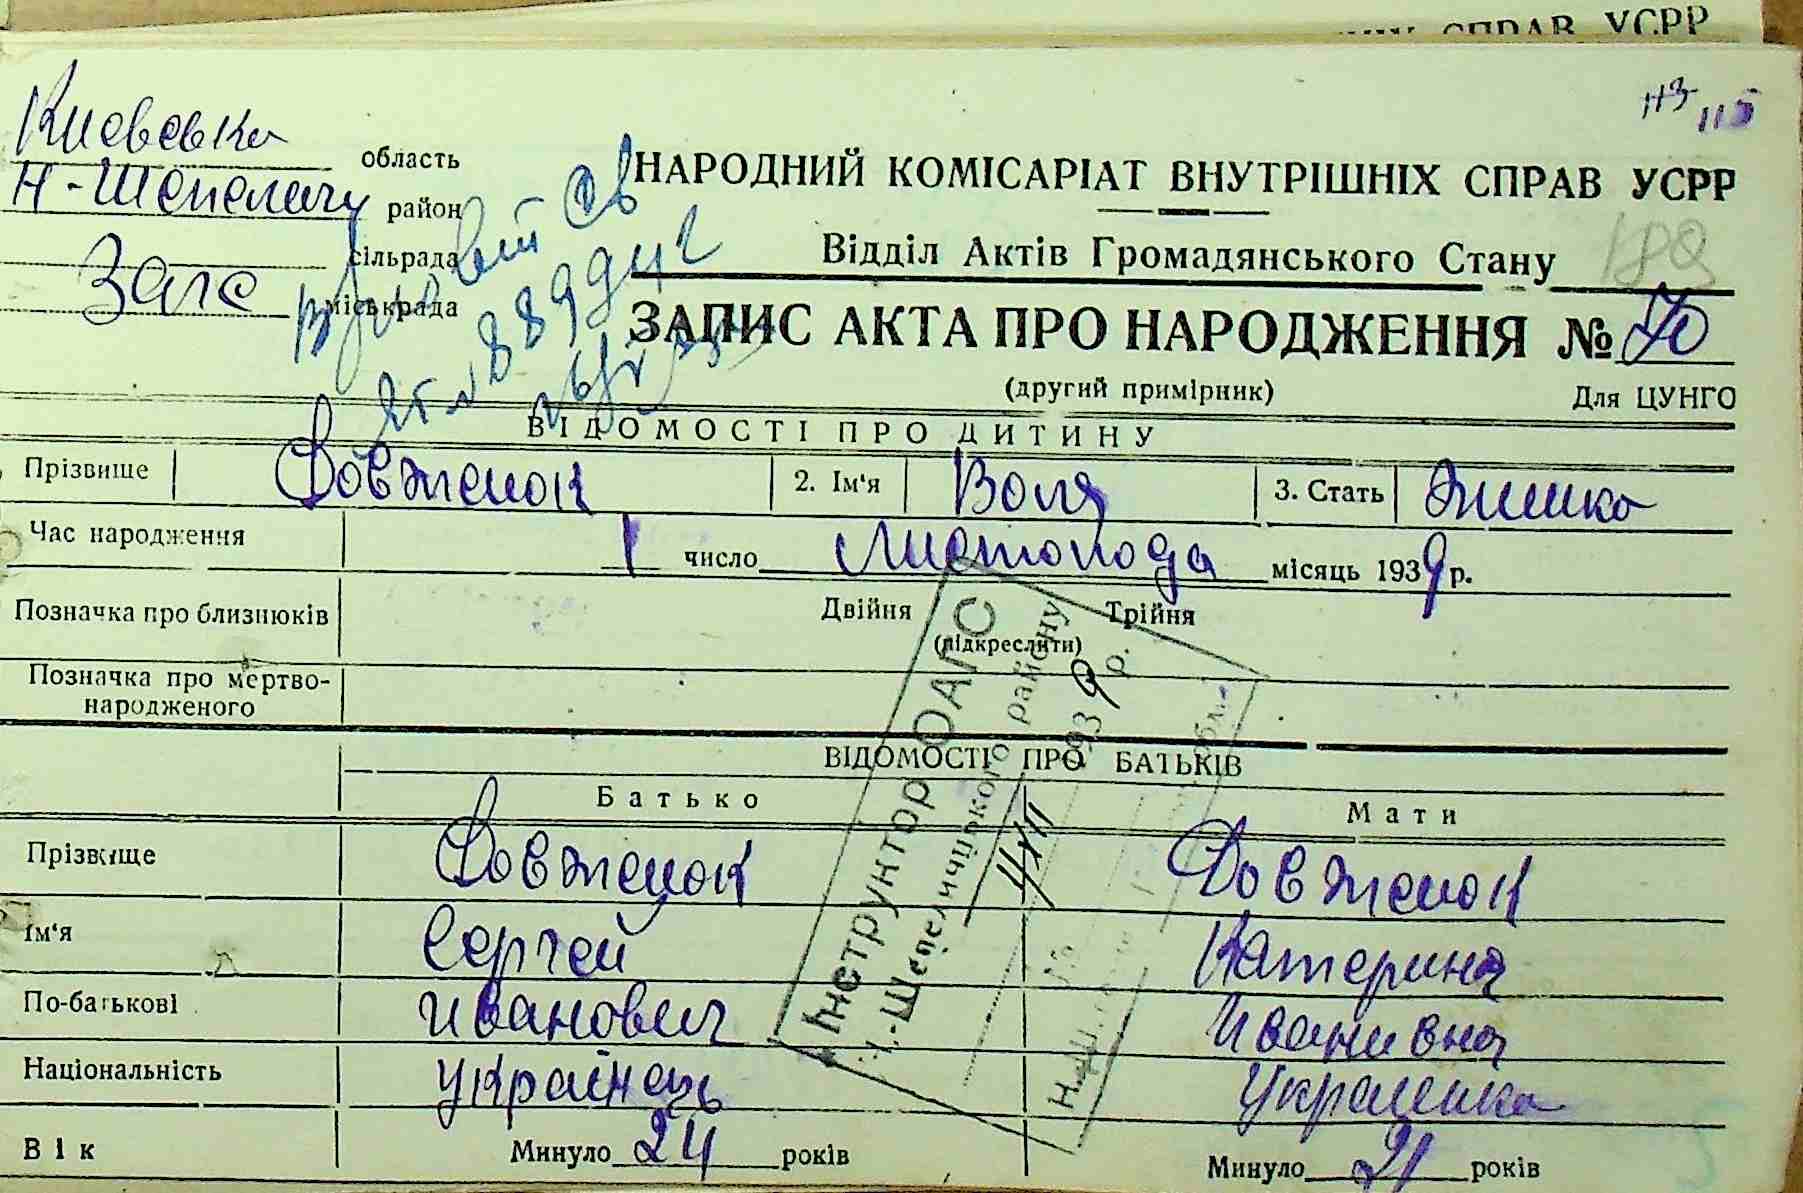 СПРАВ УСРР
113 115
Киевська область
Н-Шепеличи район
сільрада
Загс міськрада
НАРОДНИЙ КОМІСАРІАТ ВНУТРІШНІХ СПРАВ УСРР
Відділ Актів Громадянського Стану
ЗАПИС АКТА ПРО НАРОДЖЕННЯ № 70
(другий примірник) Для ЦУНГО
ВІДОМОСТІ ПРО ДИТИНУ
Прізвище Довженок 2. Ім'я Воля 3. Стать Жинка
Час народження 1 число Листопода місяць 1939 р.
Позначка про близнюків Двійня Трійня
(підкреслити)
Позначка про мертво-
народженого
ВІДОМОСТІ ПРО БАТЬКІВ
Батько Мати
Прізвище Довженок Довженок
Ім'я Сергей Катерина
По-батькові Иванович Иванивна
Національність Українець Украинка
Вік Минуло 24 років Минуло 21 років
Інструктор ОАГС
Н.-Шепеличцького району
4/XII 1939 р.